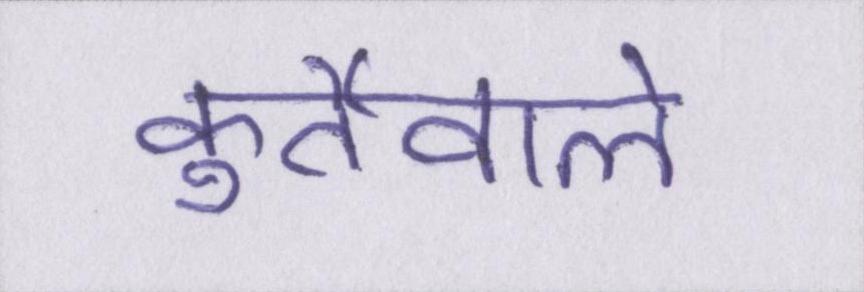 कुर्तेवाले